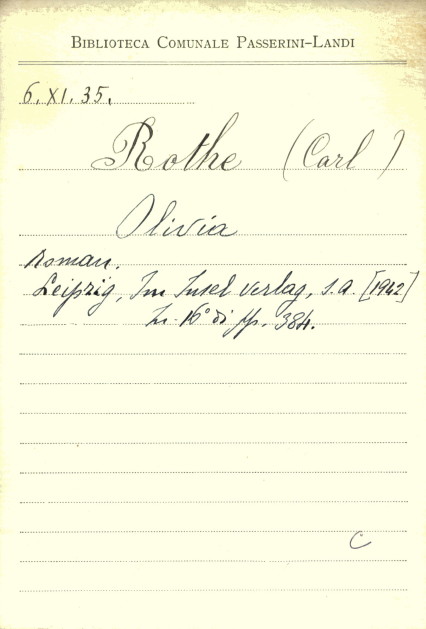 BIBLIOTECA COMUNALE PASSERINI-LANDI
6. XI. 35.
Rothe (Carl)
Olivia
Roman.
Leipzig, Im Insel Verlag, s.a. [1942]
In-16° di pp. 384.
C